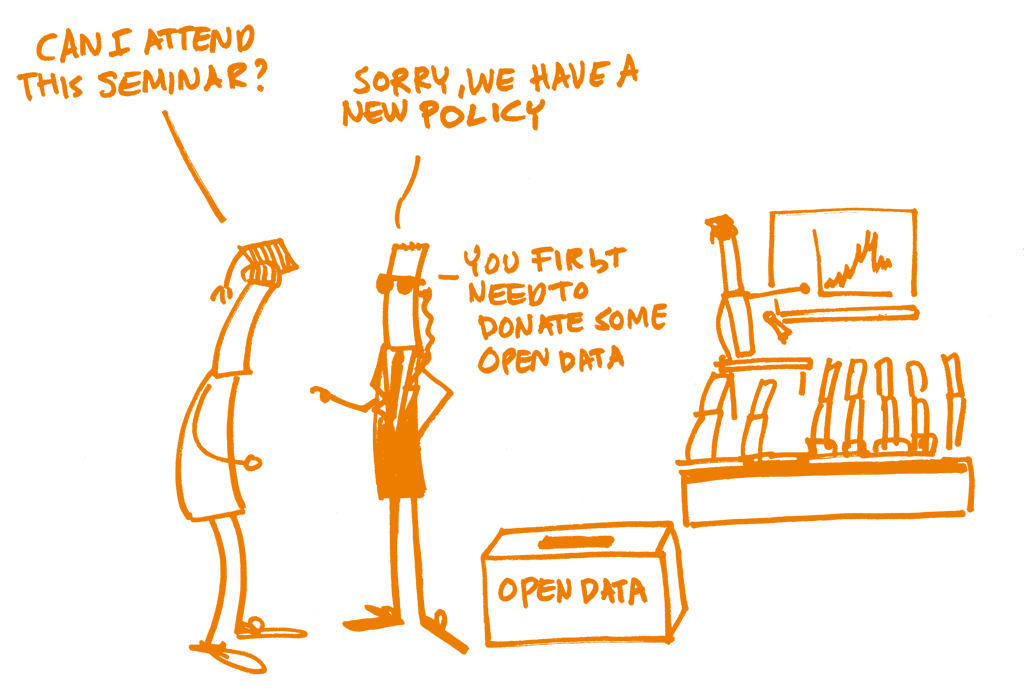 CAN I ATTEND
THIS SEMINAR?
SORRY, WE HAVE A
NEW POLICY
YOU FIRST
NEED TO
DONATE SOME
OPEN DATA
OPEN DATA